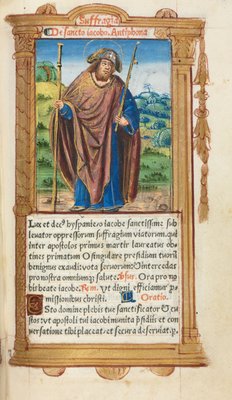 Suffragia
De sancto iacobo. Antiphona
Lux et decꝰ hyspanie so iacobe sanctissime sub
leuator oppressorum suffragium viatorum, qui
inter apostolos primus martir laureatus ob
tines primatum O singulare presidium tuorū
benignus exaudi vota seruorum: Intercede ꝓ
nostra omniumqꝫ salute. Versus. Ora pro no
bis beate iacobe. Res. vt digni efficiamur ꝓ
missionibus christi. Oratio.
Esto domine plebis tue sanctificator & cu
stos: vt apostoli tui iacobi munita p̄sidiis et con
uersatione tibi placeat, et secura deseruiat. p.